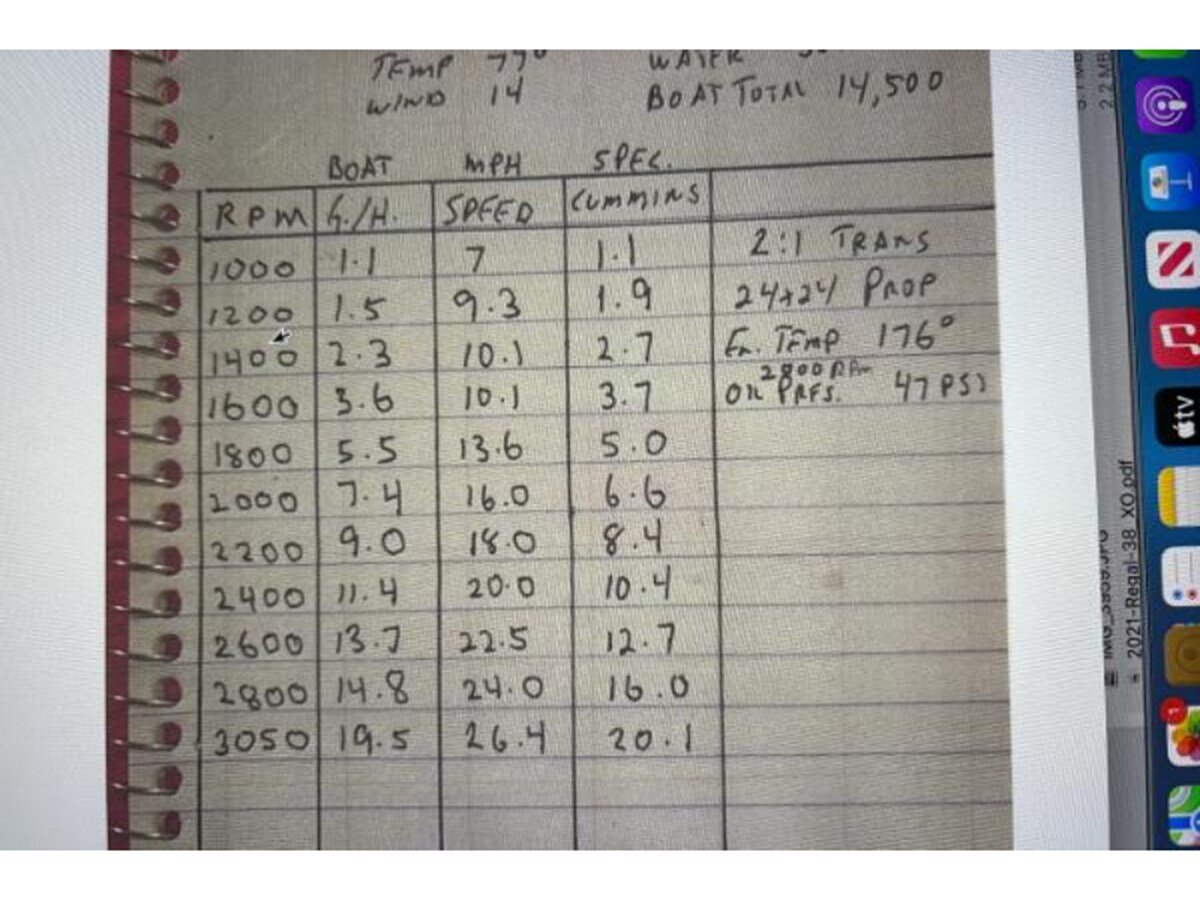 TEMP 77°
WATER
WIND 14
BOAT TOTAL 14,500
BOAT MPH SPEC.
RPM G./H. SPEED CUMMINS
1000 1.1 7 1.1 2:1 TRANS
1200 1.5 9.3 1.9 24+24 PROP
1400 2.3 10.1 2.7 En. TEMP 176°
2800 RPm
1600 3.6 10.1 3.7 OIL PRES. 47 PSI
1800 5.5 13.6 5.0
2000 7.4 16.0 6.6
2200 9.0 18.0 8.4
2400 11.4 20.0 10.4
2600 13.7 22.5 12.7
2800 14.8 24.0 16.0
3050 19.5 26.4 20.1
2.2 MB
2021-Regal-38_XO.pdf
tv
1